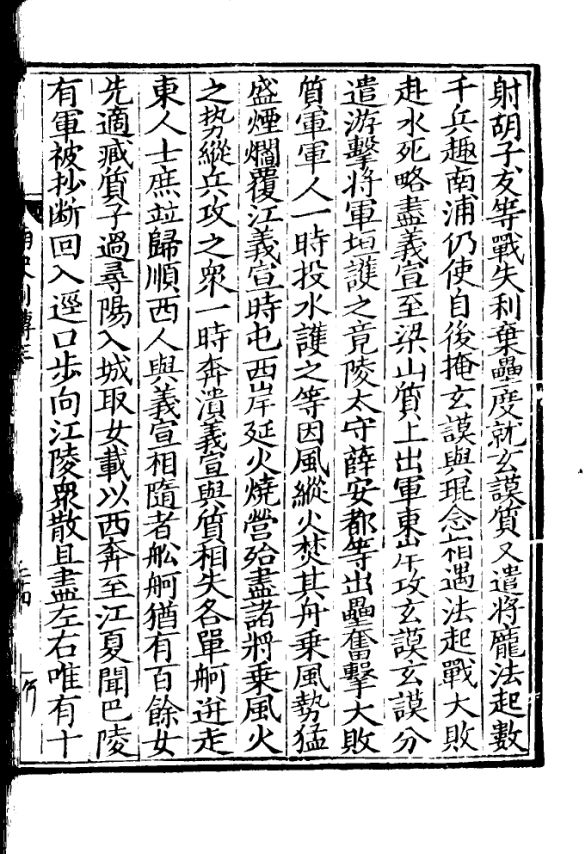 射胡子友等戰失利棄壘度就玄謨質又遣將龐法起數
千兵趣南浦仍使自後掩玄謨與琨念相遇法起戰大敗
赴水死略盡義宣至梁山質上出軍東岸攻玄謨玄謨分
遣游擊將軍垣護之竟陵太守薛安都等出壘奮擊大敗
質軍軍人一時投水護之等因風縱火焚其舟乘風勢猛
盛煙爓覆江義宣時屯西岸延火燒營殆盡諸將乘風火
之勢縱兵攻之衆一時奔潰義宣與質相失各單舸迸走
東人士庶竝歸順西人與義宣相隨者舩舸猶有百餘女
先適臧質子過尋陽入城取女載以西奔至江夏聞巴陵
有軍被抄斷回入逕口步向江陵衆散且盡左右唯有十